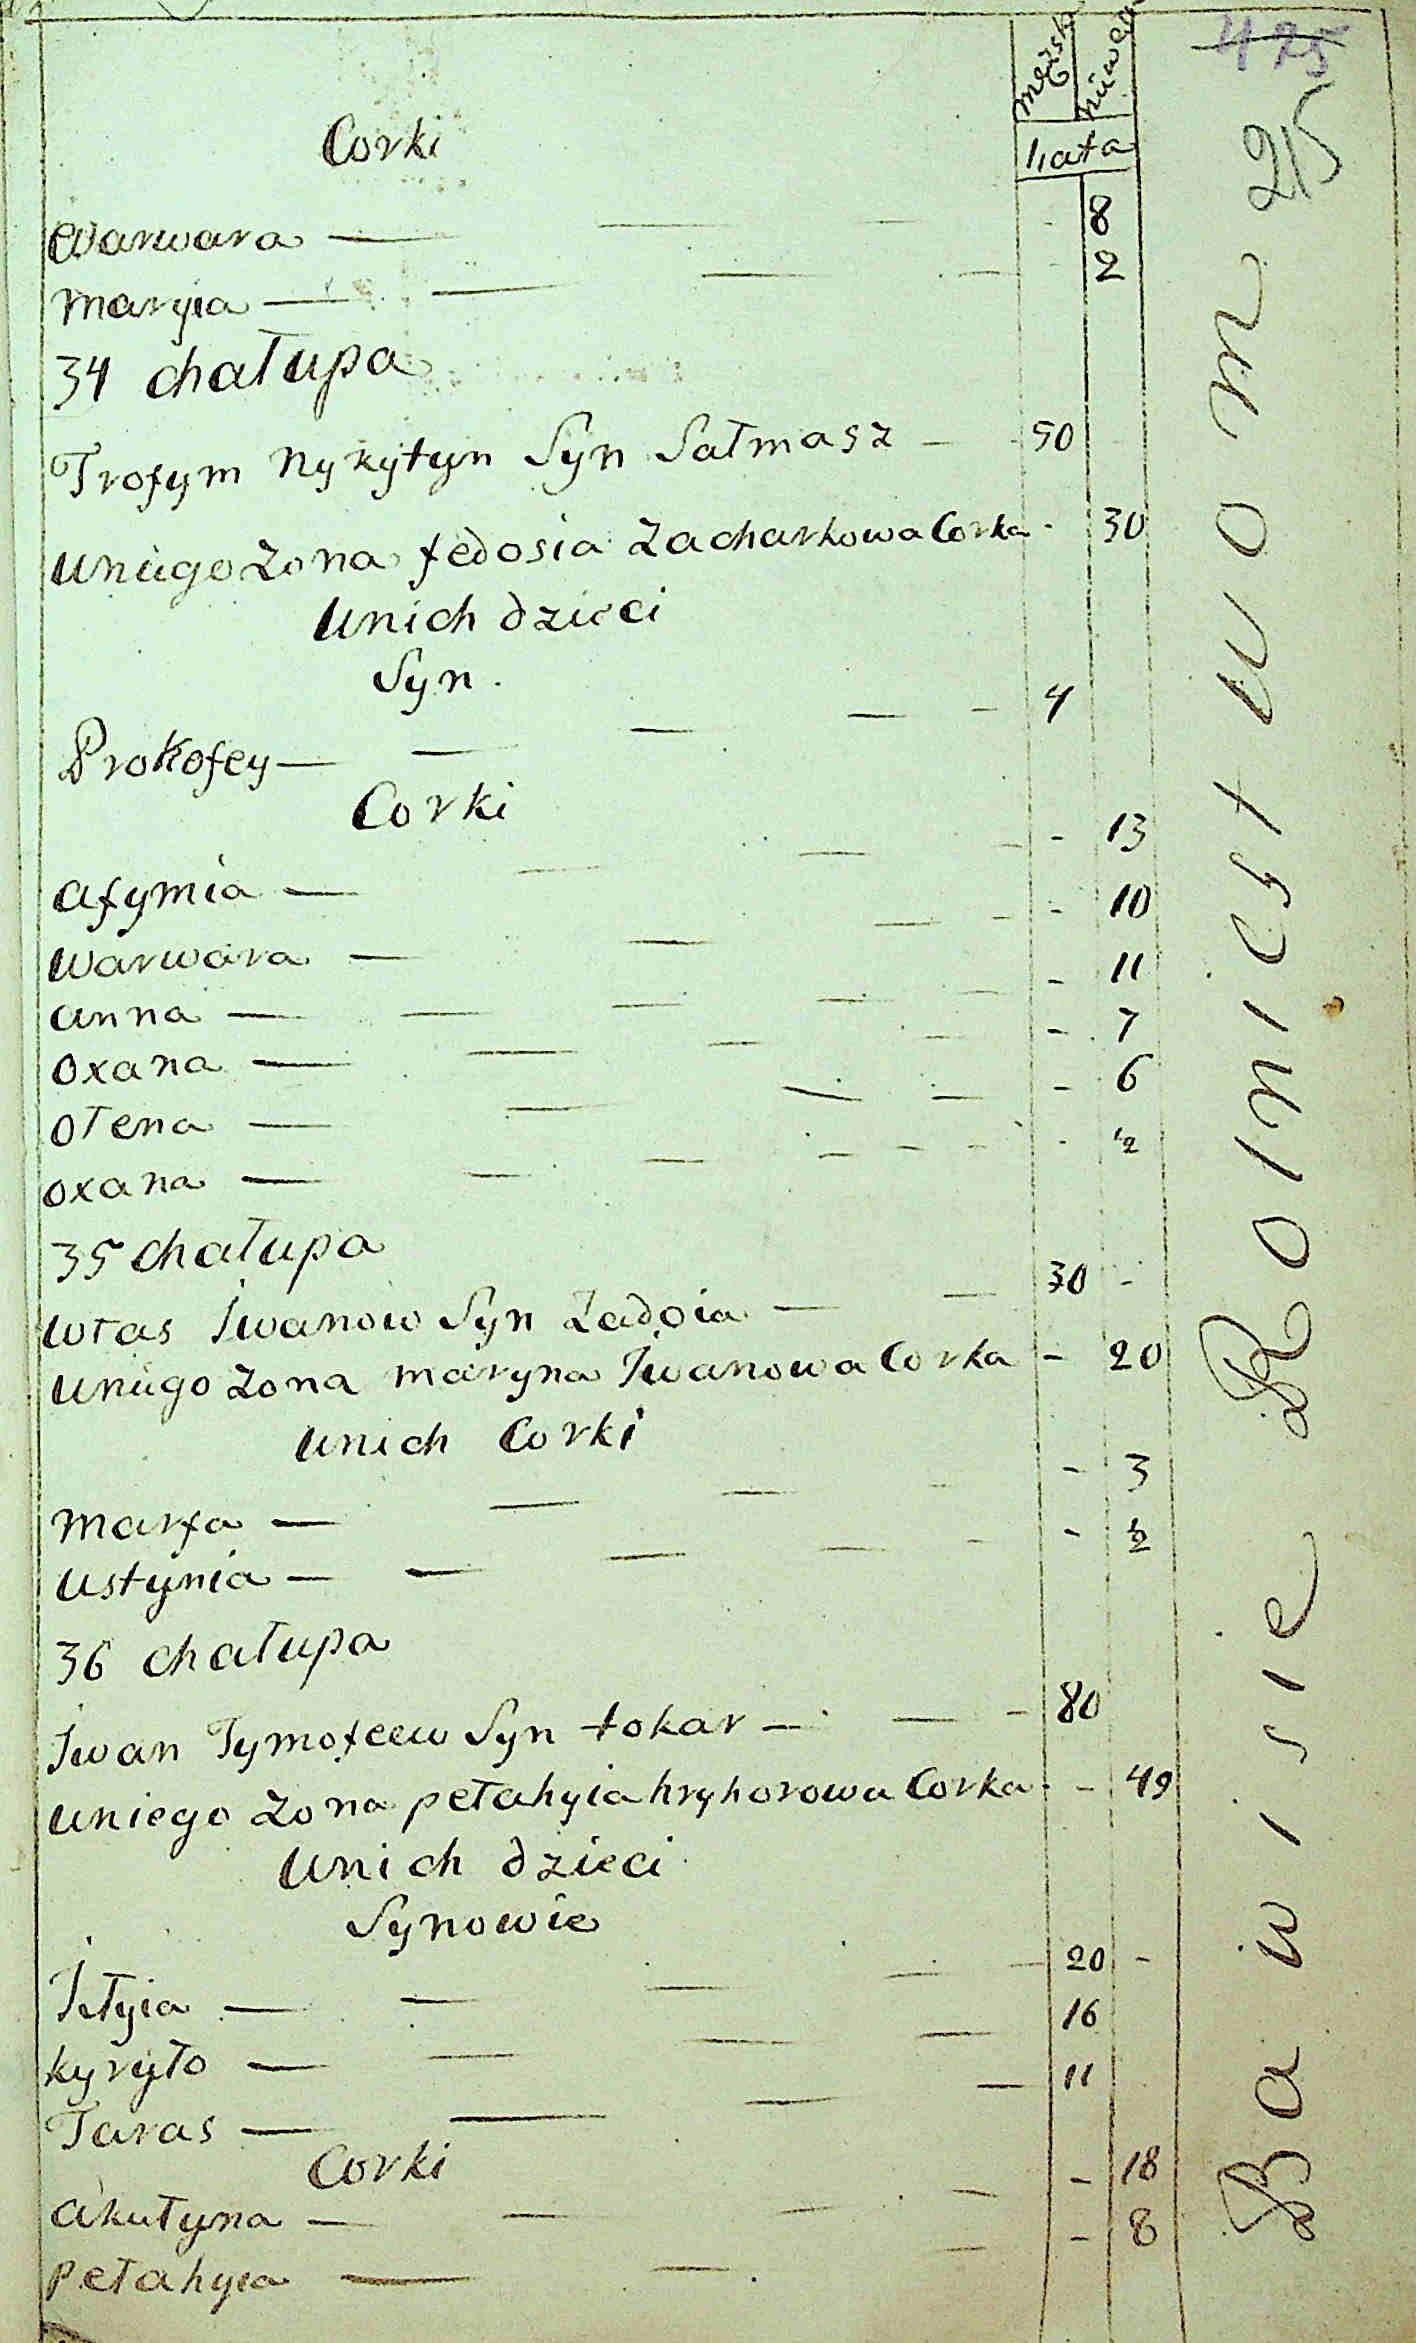 męsk niwea
łiata
425
215
Corki
Warwara — 8
maryia — 2
34 chałupa
Trofym Nykytyn Syn Sałmasz — 50
uniego żona fedosia zacharkowa Corka - 30
unich dzieci
Syn
Prokofey — 4
Corki
afymia — 13
warwara — 10
anna — 11
oxana — 7
ołena — 6
oxana — ½
35 chałupa
włas Iwanow Syn Zadoia — 30 -
uniego żona maryna Iwanowa Corka - 20
unich Corki
marfa — 3
ustynia — ½
36 chałupa
Iwan Tymofeew Syn tokar — 80
uniego żona pełahyia hryhorowa Corka - 49
unich dzieci
Synowie
Iłyia — 20 -
kyryło — 16
Taras — 11
Corki
akułyna — 18
pełahyia — 8
Bawi sie Rolnictwom